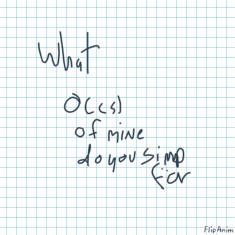 What
O(cs)
of mine
do you simp
for
FlipAnim